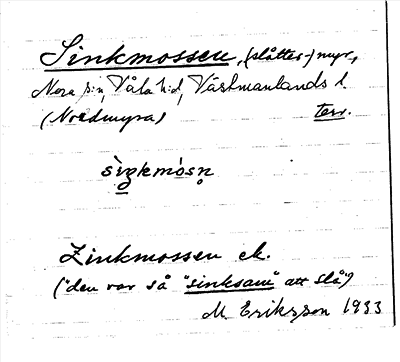 Sinkmossen, (slåtter-)myr,
Nora s:n, Våla h:d, Västmanlands l.
(Nordmyra) terr.
sìŋkmósn̥
Zinkmossen ek.
("den var så "sinksam" att slå")
M. Eriksson 1933